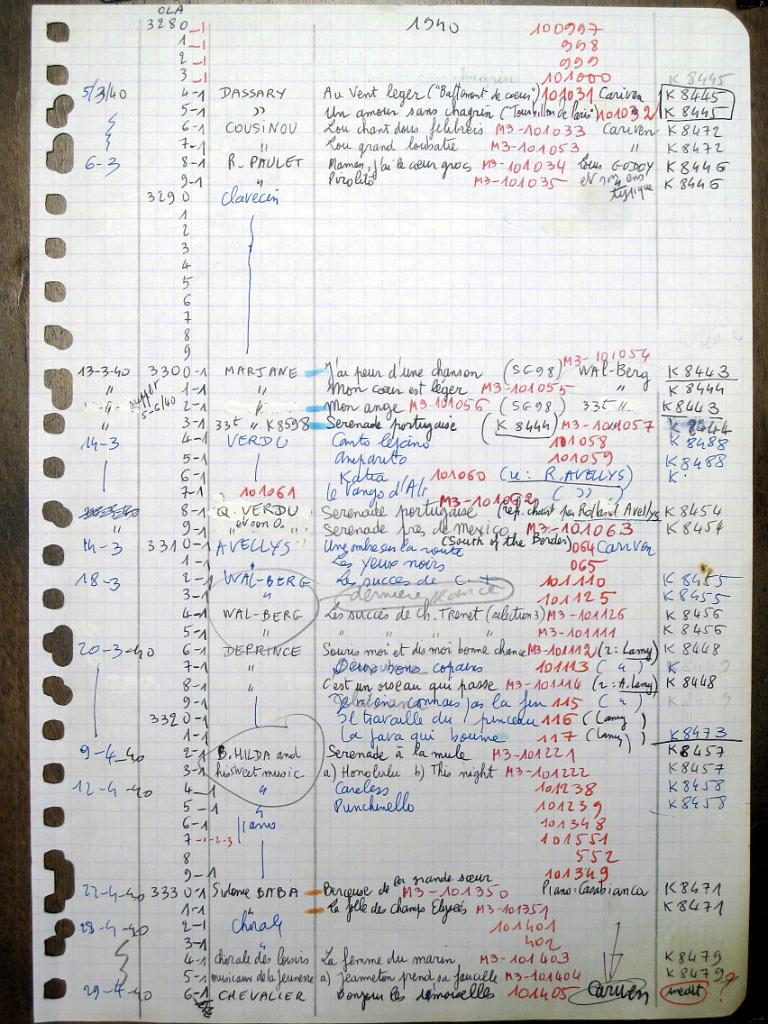 OLA
3280-1 1940 100997
1-1 998
2-1 999
3-1 101000 K 8445
5/3/40 4-1 DASSARY Au Vent leger ("Battement de coeur") 101031 Cariven K 8445
5-1 " Un amour sans chagrin ("Tourbillon de Paris") 101032 K 8445
6-1 COUSINOU Lou chant dous felibreis M3-101033 Cariven K 8472
7-1 " Lou grand loubatié M3-101053 " K 8472
6-3 8-1 R. PAULET Maman, j'ai le coeur gros M3-101034 Louis GODOY K 8446
9-1 " Pirolito M3-101035 et son ens K 8446
typique
3290 Clavecin
1
2
3
4
5
6
7
8
9
13-3-40 3300-1 MARJANE J'ai peur d'une chanson (SG98) M3-101054 WAL-Berg K 8443
" 1-1 " Mon coeur est léger M3-101055 " K 8444
" 2-1 " Mon ange M3-101056 (SG98) 33t " K 8443
" 3-1 33t " K8598 Serenade portugaise (K 8444) M3-101057 K 8444
14-3 4-1 VERDU 101058 K 8488
5-1 Amparito 101059 K 8488
6-1 Katia 101060 (u: R. AVELLYS) K
7-1 101061 Le tango d'Ali ( " )
8-1 Q. VERDU Serenade portugaise M3-101062 (ref. chant par Rolland Avellys K 8454
" 9-1 et son O. Serenade près de Mexico M3-101063 K 8454
14-3 3310-1 AVELLYS Une ombre sur la route (South of the Border) 064 Cariven
1-1 " Les yeux noirs 065
18-3 2-1 WAL-BERG Les succès de C. T 101110 K 8455
3-1 " dernière séance 101125 K 8455
4-1 WAL-BERG Les succès de Ch. Trenet (selection 3) M3-101126 K 8456
5-1 " " " " " M3-101111 K 8456
20-3-40 6-1 DEPRINCE Souris moi et dis moi bonne chance M3-101112 (2: Lamy) K 8448
7-1 " Deux bons copains 101113 ( " ) K
8-1 C'est un oiseau qui passe M3-101114 (2: A. Lamy) K 8448
9-1 connais pas la fin 115 ( " )
3320-1 Il travaille du pinceau 116 (Lamy)
1-1 La java qui 117 (Lamy) K 8473
9-4-40 2-1 B. HILDA and Serenade à la mule M3-101221 K 8457
3-1 his sweet music a) Honolulu b) This night M3-101222 K 8457
12-4-40 4-1 " Careless 101238 K 8458
5-1 " Punchinello 101239 K 8458
6-1 piano 101348
7-1-2-3 101551
8 552
9-1 101349
22-4-40 3330-1 Sidonie BABA Berceuse de la grande soeur M3-101350 Piano: Casabianca K 8471
1-1 " La folle des champs Elysées M3-101351 K 8471
28-4-40 2-1 Chorale 101401
3-1 " 402
4-1 chorale des loisirs La femme du marin M3-101403 K 8479
5-1 musicaux de la jeunesse a) Jeanneton prend sa faucille M3-101404 K 8479?
29-4-40 6-1 CHEVALIER Bonjour les 101405 Cariven inédit